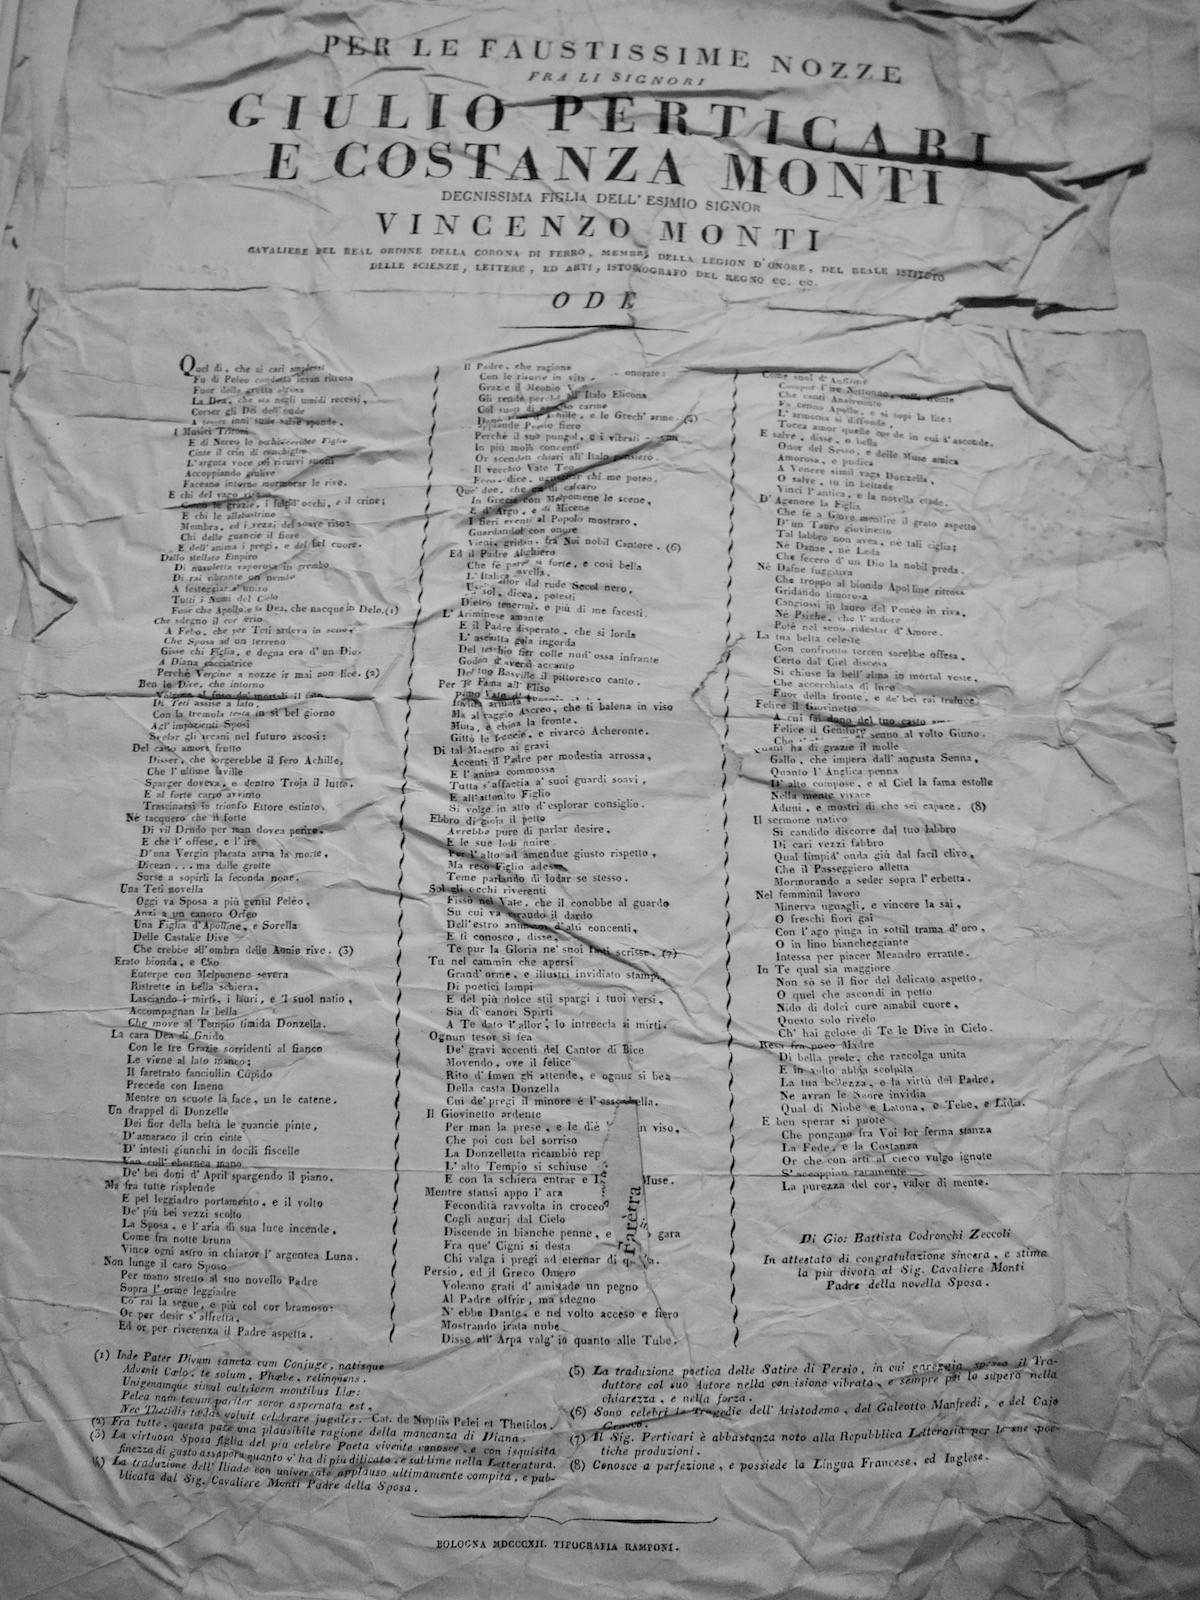 PER LE FAUSTISSIME NOZZE
FRA LI SIGNORI
GIULIO PERTICARI
E COSTANZA MONTI
DEGNISSIMA FIGLIA DELL' ESIMIO SIGNOR
VINCENZO MONTI
CAVALIERE DEL REAL ORDINE DELLA CORONA DI FERRO, MEMBRO DELLA LEGION D'ONORE, DEL REALE ISTITUTO
DELLE SCIENZE, LETTERE, ED ARTI, ISTORIOGRAFO DEL REGNO ec. ec.
ODE
Quel dì, che ai cari amplessi
Fu di Peleo condotta invan ritrosa
Fuor della grotta algosa
La Dea, che sta negli umidi recessi,
Corser gli Dei dell' onde
A tesser inni sulle salse sponde.
I Musici Tritoni
E di Nereo le occhicerulee Figlie
Cinte il crin di conchiglie
L'arguta voce coi ricurvi suoni
Accoppiando giulive
Faceano intorno mormorar le rive.
E chi del vago viso
Canta le grazie, i fulgid' occhi, e il crine;
E chi le allabastrine
Membra, ed i vezzi del soave riso:
Chi delle guancie il fiore
E dell' anima i pregi, e del bel cuore.
Dallo stellato Empiro
Di nuvoletta vaporosa in grembo
Di rai vibrante un nembo
A festeggiar s'uniro
Tutti i Numi del Cielo
Fuor che Apollo, e la Dea, che nacque in Delo. (1)
Che sdegno il cor ferio
A Febo, che per Teti ardeva in seno,
Che Sposa ad un terreno
Gisse chi Figlia, e degna era d'un Dio.
A Diana cacciatrice
Perchè Vergine a nozze ir mai non lice. (2)
Ben le Dive, che intorno
Volgono al fuso de' mortali il fato
Di Teti assise a lato,
Con la tremula testa in sì bel giorno
Agl' impazienti Sposi
Svelar gli arcani nel futuro ascosi:
Del casto amore frutto
Disser, che sorgerebbe il fero Achille,
Che l' ultime faville
Sparger doveva, e dentro Troja il lutto,
E al forte carro avvinto
Trascinarsi in trionfo Ettore estinto.
Nè tacquero che il forte
Di vil Drudo per man dovea perire.
E che l' offese, e l' ire
D'una Vergin placata avria la morte,
Dicean . . . ma dalle grotte
Surse a sopirli la feconda notte.
Una Teti novella
Oggi va Sposa a più gentil Peleo,
Anzi a un canoro Orfeo
Una Figlia d'Apolline, e Sorella
Delle Castalie Dive
Che crebbe all'ombra delle Aonie rive. (3)
Erato bionda, e Clio
Euterpe con Melpomene severa
Ristrette in bella schiera,
Lasciando i mirti, i lauri, e 'l suol natio,
Accompagnan la bella
Che move al Tempio timida Donzella.
La cara Dea di Gnido
Con le tre Grazie sorridenti al fianco
Le viene al lato manco;
Il faretrato fanciullin Cupido
Precede con Imene
Mentre un scuote la face, un le catene.
Un drappel di Donzelle
Dei fior della beltà le guancie pinte,
D'amaraco il crin cinte
D' intesti giunchi in docili fiscelle
Van coll' eburnea mano
De' bei doni d' April spargendo il piano.
Ma fra tutte risplende
E pel leggiadro portamento, e il volto
De' più bei vezzi scolto
La Sposa, e l'aria di sua luce incende,
Come fra notte bruna
Vince ogni astro in chiaror l' argentea Luna.
Non lunge il caro Sposo
Per mano stretto al suo novello Padre
Sopra l'orme leggiadre
Co' rai la segue, e più col cor bramoso:
Or per desir s'affretta,
Ed or per riverenza il Padre aspetta.
Il Padre, che ragiona
Con le risorte in vita onorate:
Grazie il Meonio Vate
Gli rende perchè all' Italo Elicona
Col suon di carme
e le Grech' arme. (4)
applaude Persio fiero
Perchè il suo pungol, e i vibrati
In più molli concenti
Or scendon chiari all' Italo pensiero.
Il vecchio Vate Teo
dice, chi me poteo.
Que' due, che di calcaro
In Grecia con Melpomene le scene,
E d'Argo, e di Micene
I fieri eventi al Popolo mostraro,
Guardandol con onore
Vieni, gridan, fra Noi nobil Cantore. (6)
Ed il Padre Alighiero
Che fè parer sì forte, e così bella
L' Italica favella,
fior dal rude Secol nero,
sol, dicea, potesti
Dietro tenermi, e più di me facesti.
L' Ariminese amante
E il Padre disperato, che si lorda
L' asciutta gola ingorda
Del teschio fier colle nud' ossa infrante
Godon d'averti accanto
De' tuo Basville il pittoresco canto.
Per Te Fama all' Eliso
Primo Vate
Invida armata
Ma al raggio Ascreo, che ti balena in viso
Muta, e china la fronte,
Gittò le freccie, e rivarcò Acheronte.
Di tal Maestro ai gravi
Accenti il Padre per modestia arrossa,
E l' anima commossa
Tutta s'affaccia a' suoi guardi soavi,
E all' attonito Figlio
Si volge in atto d'esplorar consiglio.
Ebbro di gioja il petto
Avrebbe pure di parlar desire,
E le sue lodi unire
Per l'alto ad amendue giusto rispetto,
Ma reso Figlio adesso
Teme parlando di lodar se stesso.
Sol gli occhi riverenti
Fissò nel Vate, che il conobbe al guardo
Su cui va vibrando il dardo
Dell'estro animator d'alti concenti,
E ti conosco, disse,
Te pur la Gloria ne' suoi fasti scrisse. (7)
Tu nel cammin che apersi
Grand' orme, e illustri invidiato stampi,
Di poetici lampi
E del più dolce stil spargi i tuoi versi,
Sia di canori Spirti
A Te dato l'allor, lo intreccia ai mirti.
Ognun tesor si fea
De' gravi accenti del Cantor di Bice
Movendo, ove il felice
Rito d'Imen gli attende, e ognun si bea
Della casta Donzella
Cui de' pregi il minore è l'esser bella.
Il Giovinetto ardente
Per man la prese, e le diè n viso,
Che poi con bel sorriso
La Donzelletta ricambiò rep
L' alto Tempio si schiuse
E con la schiera entrar e l Muse.
Mentre stansi appo l' ara
Fecondità ravvolta in croceo
Cogli augurj dal Cielo
Discende in bianche penne, e gara
Fra que' Cigni si desta
Chi valga i pregi ad eternar di q
Faretra
Persio, ed il Greco Omero
Voleano grati d' amistade un pegno
Al Padre offrir, ma sdegno
N' ebbe Dante, e nel volto acceso e fiero
Mostrando irata nube
Disse all' Arpa valg' io quanto alle Tube.
Come suol d' Anfione
Compor l'ire Nettunno
Che canti Anaireonte
Fa cenno Apollo, e si sopì la lite:
L' armonia si diffonde,
Tocca amor quelle corde in cui s'asconde.
E salve, disse, o bella
Onor del Sesso, e delle Muse amica
Amorosa, e pudica
A Venere simìl vaga Donzella,
O salve, tu in beltade
Vinci l' antica, e la novella etade.
D' Agenore la Figlia
Che fè a Giove mentire il grato aspetto
D'un Tauro giovinetto
Tal labbro non avea, nè tali ciglia;
Nè Danae, nè Leda
Che fecero d' un Dio la nobil preda.
Nè Dafne fuggitiva
Che troppo al biondo Apolline ritrosa
Gridando timorosa
Cangiossi in lauro del Penèo in riva,
Nè Psiche, che l' ardore
Potè nel seno ridestar d' Amore.
La tua beltà celeste
Con confronto terren sarebbe offesa,
Certo dal Ciel discesa
Si chiuse la bell' alma in mortal veste,
Che accerchiata di luce
Fuor della fronte, e de' bei rai traluce.
Felice il Giovinetto
A cui fai dono del tuo casto
Felice il Genitore
Che senno al volto Giuno.
Quant' ha di grazie il molle
Gallo, che impera dall' augusta Senna,
Quanto l' Anglica penna
D' alto compose, e al Ciel la fama estolle
Nella mente vivace
Aduni, e mostri di che sei capace. (8)
Il sermone nativo
Sì candido discorre dal tuo labbro
Di cari vezzi fabbro
Qual limpid' onda giù dal facil clivo,
Che il Passeggiero alletta
Mormorando a seder sopra l' erbetta.
Nel femminil lavoro
Minerva uguagli, e vincere la sai,
O freschi fiori gai
Con l'ago pinga in sottil trama d' oro,
O in lino biancheggiante
Intessa per piacer Meandro errante.
In Te qual sia maggiore
Non sò se il fior del delicato aspetto,
O quel che ascondi in petto
Nido di dolci cure amabil cuore,
Questo solo rivelo
Ch' hai gelose di Te le Dive in Cielo.
Resa fra poco Madre
Di bella prole, che raccolga unita
E in volto abbia scolpita
La tua bellezza, e la virtù del Padre,
Ne avran le Nuore invidia
Qual di Niobe e Latona, e Tebe, e Lidia.
E ben sperar si puote
Che pongano fra Voi lor ferma stanza
La Fede, e la Costanza
Or che con arti al cieco vulgo ignote
S' accoppian raramente
La purezza del cor, valor di mente.
Di Gio: Battista Codronchi Zeccoli
In attestato di congratulazione sincera, e stima
la più divota al Sig. Cavaliere Monti
Padre della novella Sposa.
(1) Inde Pater Divum sancta cum Conjuge, natisque
Advenit Cœlo, te solum, Phœbe, relinquens,
Unigenamque simul cultricem montibus Idæ:
Pelea nam tecum pariter soror aspernata est,
Nec Thetidis tædas voluit celebrare jugales. Cat. de Nuptiis Pelei et Thetidos.
(2) Fra tutte, questa pare una plausibile ragione della mancanza di Diana.
(3) La virtuosa Sposa figlia del più celebre Poeta vivente conosce, e con isquisita
finezza di gusto assapora quanto v' ha di più dilicato, e sublime nella Letteratura.
(4) La traduzione dell' Iliade con universale applauso ultimamente compita, e pub-
blicata dal Sig. Cavaliere Monti Padre della Sposa.
(5) La traduzione poetica delle Satire di Persio, in cui gareggia spesso il Tra-
duttore col suo Autore nella concisione vibrata, e sempre poi lo supera nella
chiarezza, e nella forza.
(6) Sono celebri le Tragedie dell' Aristodemo, del Galeotto Manfredi, e del Cajo
Gracco.
(7) Il Sig. Perticari è abbastanza noto alla Repubblica Letteraria per le sue poe-
tiche produzioni.
(8) Conosce a perfezione, e possiede la Lingua Francese, ed Inglese.
BOLOGNA MDCCCXII. TIPOGRAFIA RAMPONI.